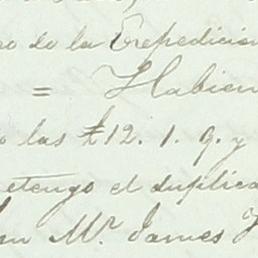 ro de la Espedicion
= Habien
o las £12. 1. 9. y
etengo el duplica
Mr. James